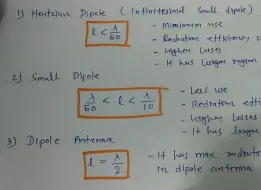 1) Hertzian Dipole (Infinitesimal Small dipole)
l < λ/50
- Minimum use
- Radiation efficiency
- Higher Losses
- It has larger region
2) Small Dipole
λ/50 < l < λ/10
- Less use
- Radiation effi
- Higher Losses
- It has larger
3) Dipole Antenna
l = λ/2
- It has max. radiati
in dipole antenna